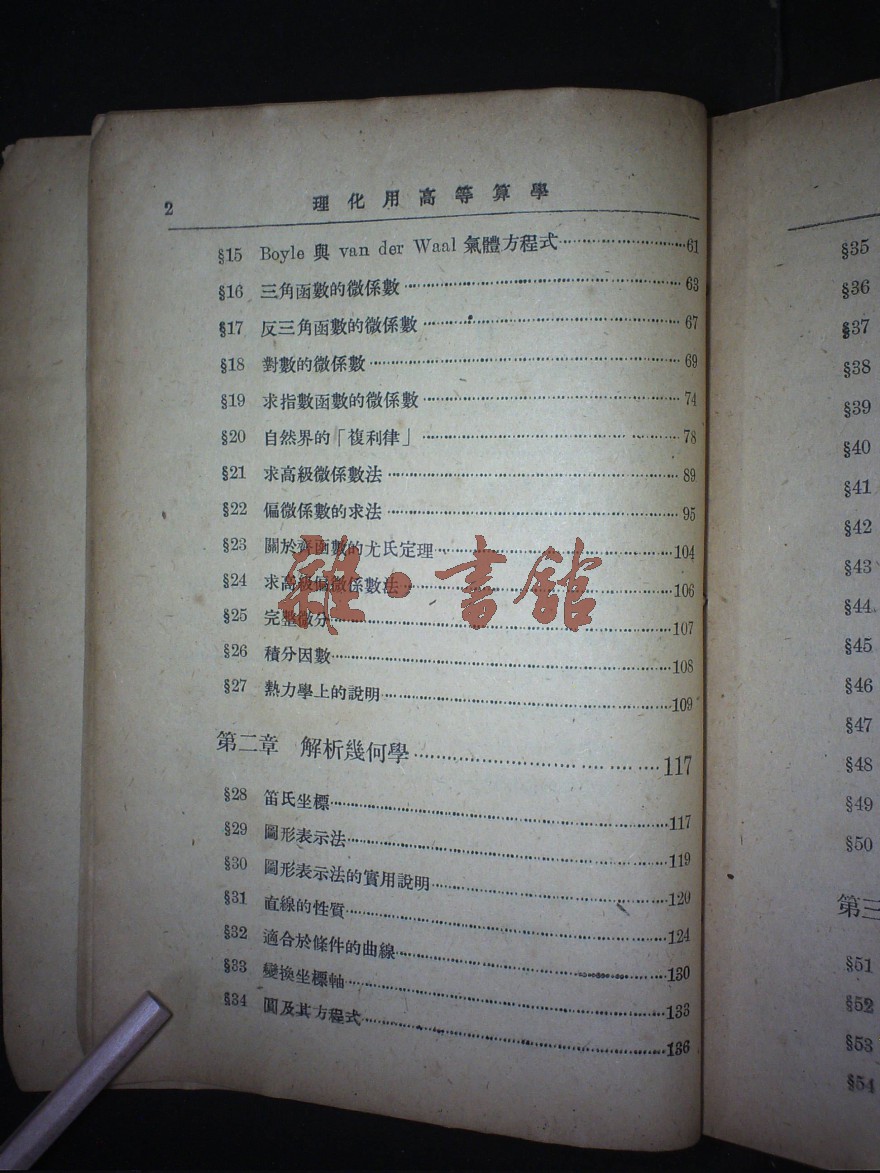 2 理化用高等算學
§15 Boyle 與 van der Waal 氣體方程式 61
§16 三角函數的微係數 63
§17 反三角函數的微係數 67
§18 對數的微係數 69
§19 求指數函數的微係數 74
§20 自然界的「複利律」 78
§21 求高級微係數法 89
§22 偏微係數的求法 95
§23 關於齊函數的尤氏定理 104
§24 求高級偏微係數法 106
§25 完整微分 107
§26 積分因數 108
§27 熱力學上的說明 109
第二章 解析幾何學 117
§28 笛氏坐標 117
§29 圖形表示法 119
§30 圖形表示法的實用說明 120
§31 直線的性質 124
§32 適合於條件的曲線 130
§33 變換坐標軸 133
§34 圓及其方程式 136
雜·書館
§35
§36
§37
§38
§39
§40
§41
§42
§43
§44
§45
§46
§47
§48
§49
§50
第三
§51
§52
§53
§54